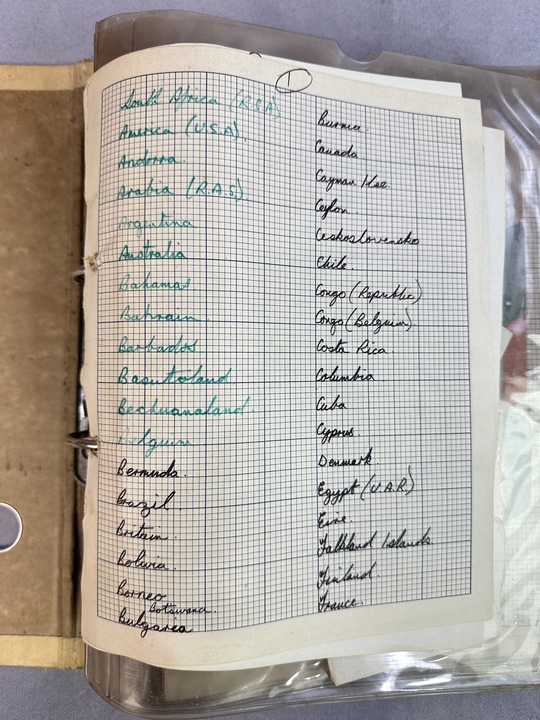 1
South Africa (R.S.A)
America (U.S.A).
Andorra.
Arabia (R.A.S)
Argentina
Australia
Bahamas
Bahrain
Barbados
Basutoland
Bechuanaland.
Belguim
Bermuda.
Brazil.
Britain.
Bolivia.
Borneo
Botswana.
Bulgaria
Burma.
Canada
Cayman Ilse.
Ceylon.
Ceskoslovensko
Chile.
Congo (Republic)
Congo (Belguim)
Costa Rica.
Columbia
Cuba
Cyprus.
Denmark.
Egypt (U.A.R)
Eire.
Falkland Islands
Finland.
France.